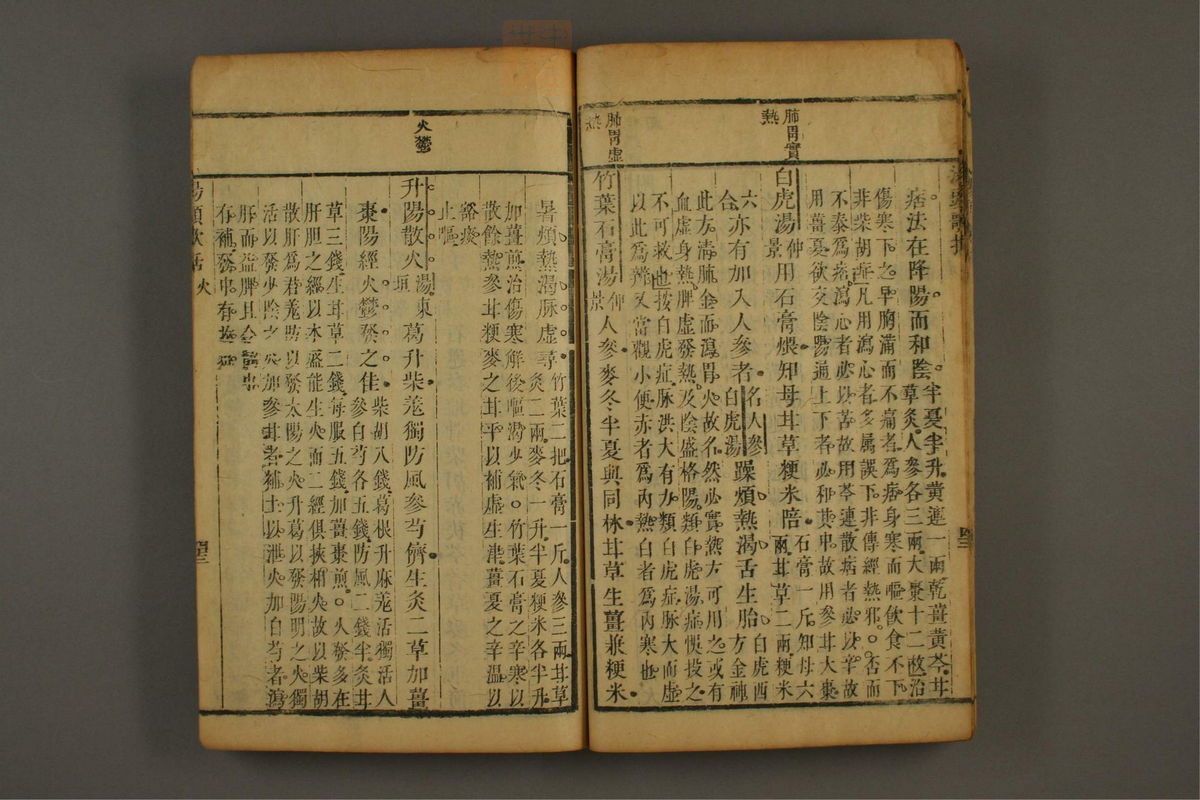 湯頭歌括
痞法在降陽而和陰半夏半升黃連一兩乾薑黃芩甘
草炙人參各三兩大棗十二枚治
傷寒下之早胸滿而不痛者爲痞身寒而嘔飲食不下
非柴胡症凡用瀉心者多屬誤下非傳經熱邪○否而
不泰爲痞瀉心者必以苦故用芩連散痞者必以辛故
用薑夏欲交陰陽通上下者必和其中故用參甘大棗
肺胃實
熱
白虎湯仲
景用石膏煨知母甘草粳米陪石膏一斤知母六
兩甘草二兩粳米
六
合亦有加入人參者名人參
白虎湯躁煩熱渴舌生胎白虎西
方金神
此方清肺金而瀉胃火故名然必實熱方可用之或有
血虛身熱脾虛發熱及陰盛格陽類白虎湯症悞投之
不可救也按白虎症脉洪大有力類白虎症脉大而虛
以此爲辨又當觀小便赤者爲內熱白者爲內寒也
肺胃虛
熱
竹葉石膏湯仲
景人參麥冬半夏與同林甘草生薑兼粳米
暑煩熱渴脉虛尋竹葉二把石膏一斤人參三兩甘草
炙二兩麥冬一升半夏粳米各半升
加薑煎治傷寒解後嘔渴少氣○竹葉石膏之辛寒以
散餘熱參甘粳麥之甘平以補虛生津薑夏之辛溫以
豁痰
止嘔
火鬱
升陽散火湯東
垣葛升柴羌獨防風參芍儕生炙二草加薑
棗陽經火鬱發之佳柴胡八錢葛根升麻羌活獨活人
參白芍各五錢防風二錢半炙甘
草三錢生甘草二錢每服五錢加薑棗煎○火發多在
肝胆之經以木盛能生火而二經俱挾相火故以柴胡
散肝爲君羌防以發太陽之火升葛以發陽明之火獨
活以發少陰之火加參甘者補土以泄火加白芍者瀉
肝而益脾且令
有補發中有
湯頭歌括 火